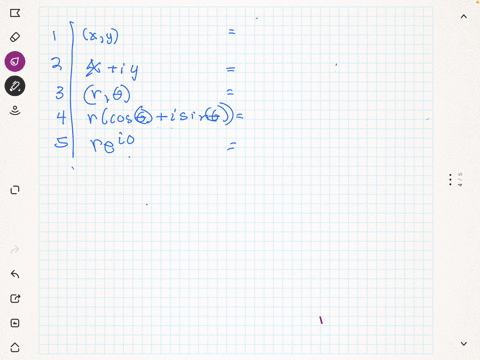 1 (x,y) =
2 x + iy =
3 (r, θ) =
4 r(cos(θ) + i sin(θ)) =
5 re^{iθ} =
4 / 5